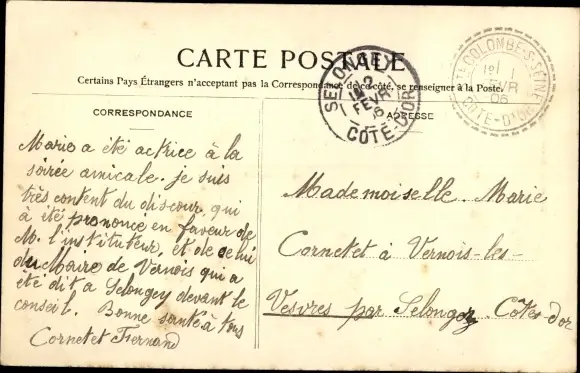 CARTE POSTALE
Certains Pays Étrangers n'acceptent pas la Correspondance de ce côté, se renseigner à la Poste.
SELONGEY
2
FEVR
06
CÔTE-D'OR
STE COLOMBE-S-SEINE
1
FEVR
06
CÔTE-D'OR
CORRESPONDANCE
Marie a été actrice à la
soirée amicale. je suis
très content du discour, qui
à été prononcé en faveur de
M. l'instituteur, et de celui
du Maire de Vernois qui a
été dit a Selongey devant le
conseil. Bonne santé à tous
Cornetet Fernand
ADRESSE
Mademoiselle. Marie
Cornetet à Vernois-les-
Vesvres par Selongey Côte-d'or